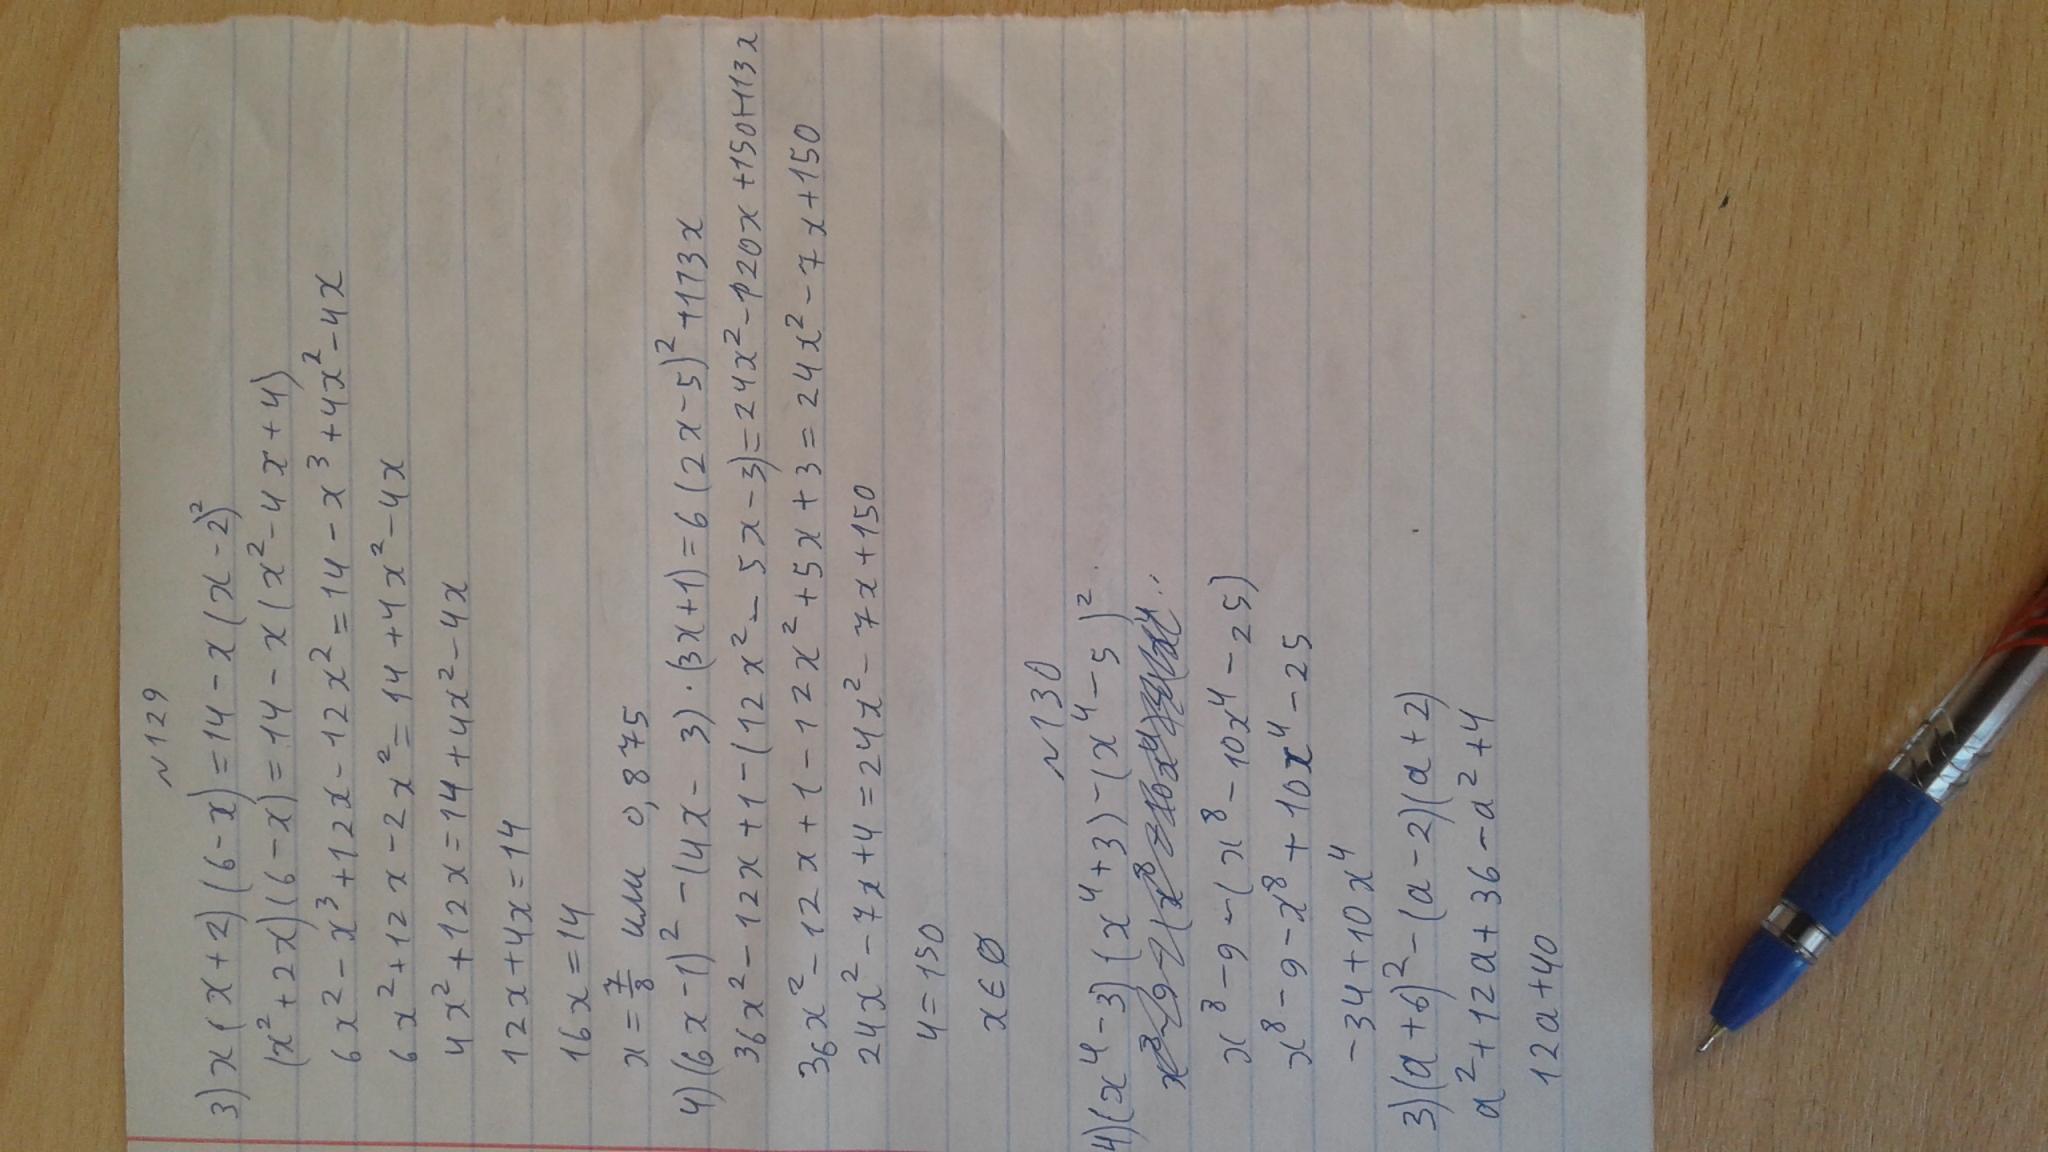 №129
3) x(x+2)(6-x)=14-x(x-2)²
(x²+2x)(6-x)=14-x(x²-4x+4)
6x²-x³+12x-12x²=14-x³+4x²-4x
6x²+12x-2x²=14+4x²-4x
4x²+12x=14+4x²-4x
12x+4x=14
16x=14
x=7/8 или 0,875
4)(6x-1)²-(4x-3)·(3x+1)=6(2x-5)²+113x
36x²-12x+1-(12x²-5x-3)=24x²-120x+150+113x
36x²-12x+1-12x²+5x+3=24x²-7x+150
24x²-7x+4=24x²-7x+150
4=150
x∈∅
№130
4)(x⁴-3)(x⁴+3)-(x⁴-5)²
x⁸-9-(x⁸-10x⁴-25)
x⁸-9-x⁸+10x⁴-25
-34+10x⁴
3)(a+6)²-(a-2)(a+2)
a²+12a+36-a²+4
12a+40